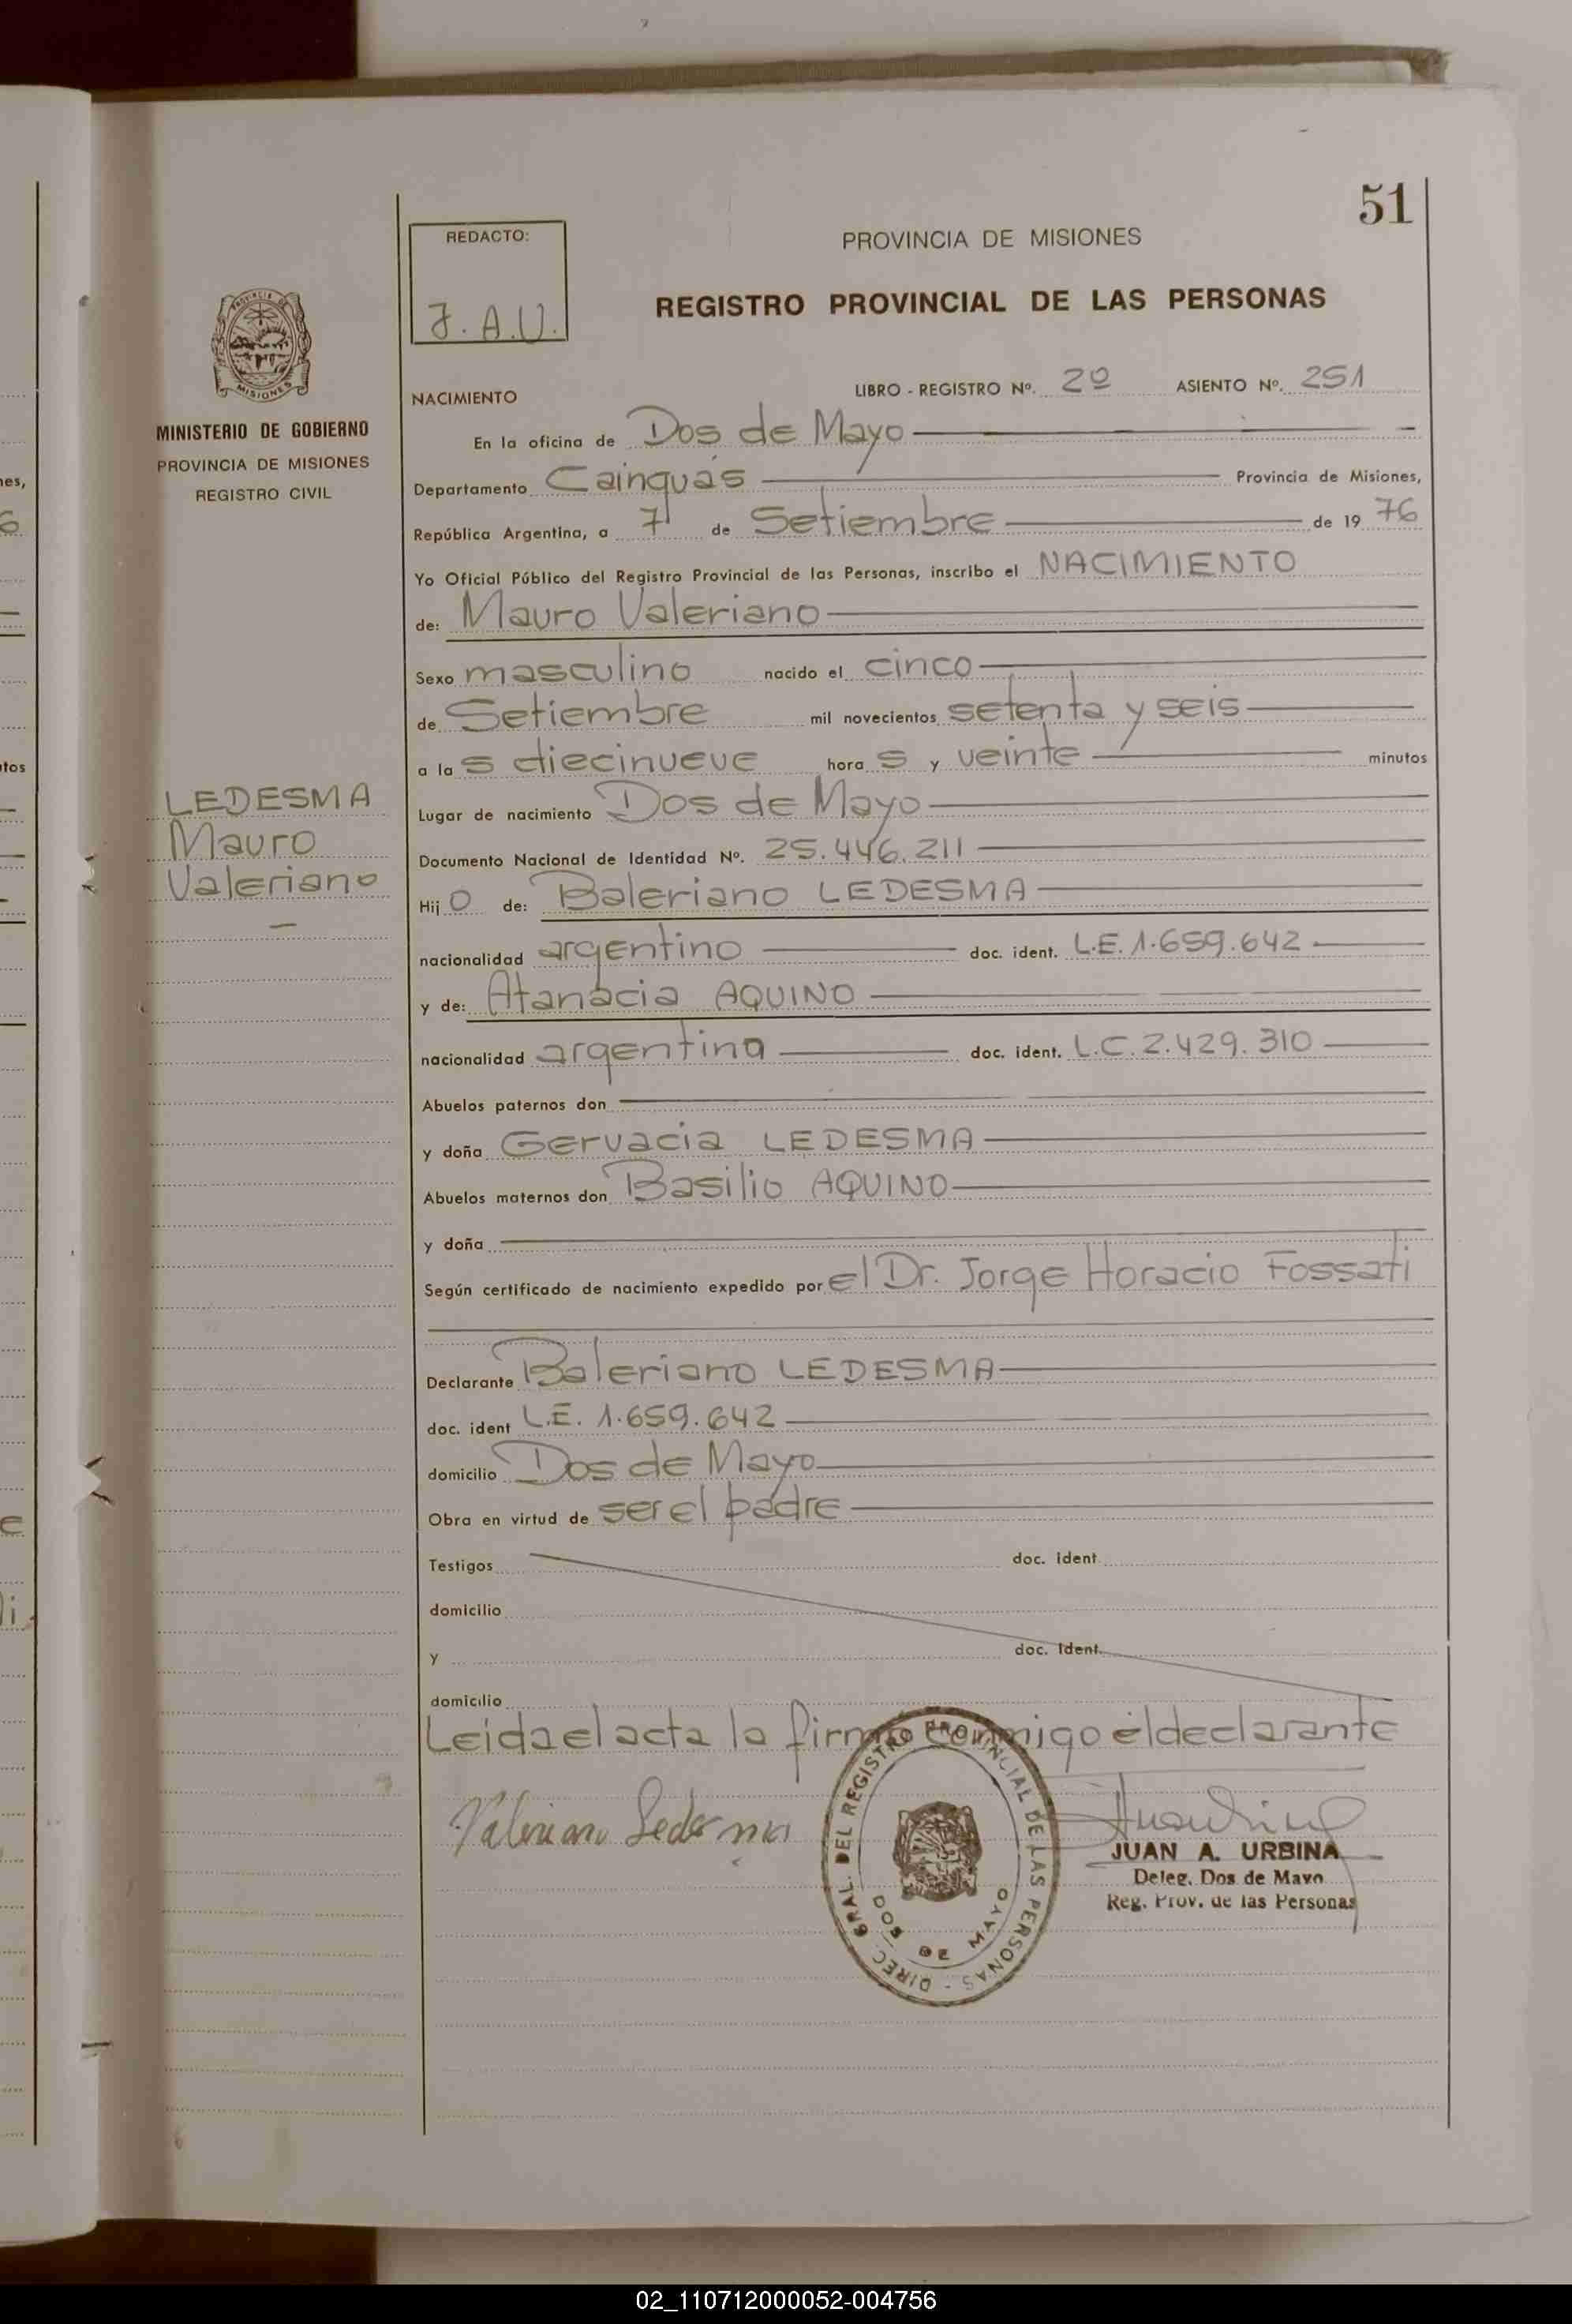 51
REDACTO:
J. A. U.
PROVINCIA DE MISIONES
REGISTRO PROVINCIAL DE LAS PERSONAS
PROVINCIA DE
MISIONES
MINISTERIO DE GOBIERNO
PROVINCIA DE MISIONES
REGISTRO CIVIL
LEDESMA
Mauro
Valeriano
NACIMIENTO LIBRO - REGISTRO Nº. 2º ASIENTO Nº. 251
En la oficina de Dos de Mayo
Departamento Cainguás Provincia de Misiones,
República Argentina, a 7 de Setiembre de 19 76
Yo Oficial Público del Registro Provincial de las Personas, inscribo el NACIMIENTO
de: Mauro Valeriano
Sexo masculino nacido el cinco
de Setiembre mil novecientos setenta y seis
a la s diecinueve hora s y veinte minutos
Lugar de nacimiento Dos de Mayo
Documento Nacional de Identidad Nº. 25.446.211
Hij o de: Baleriano LEDESMA
nacionalidad argentino doc. ident. L.E. 1.659.642
y de: Atanacia AQUINO
nacionalidad argentina doc. ident. L.C. 2.429.310
Abuelos paternos don
y doña Gervacia LEDESMA
Abuelos maternos don Basilio AQUINO
y doña
Según certificado de nacimiento expedido por el Dr. Jorge Horacio Fossati
Declarante Baleriano LEDESMA
doc. ident L.E. 1.659.642
domicilio Dos de Mayo
Obra en virtud de ser el padre
Testigos doc. ident
domicilio
y doc. ident.
domicilio
Leida el acta la firmó conmigo el declarante
Valeriano Ledesma
DIREC. GRAL. DEL REGISTRO PROVINCIAL DE LAS PERSONAS -
DOS DE MAYO
JUAN A. URBINA
Deleg. Dos de Mayo
Reg. Prov. de las Personas
02_110712000052-004756